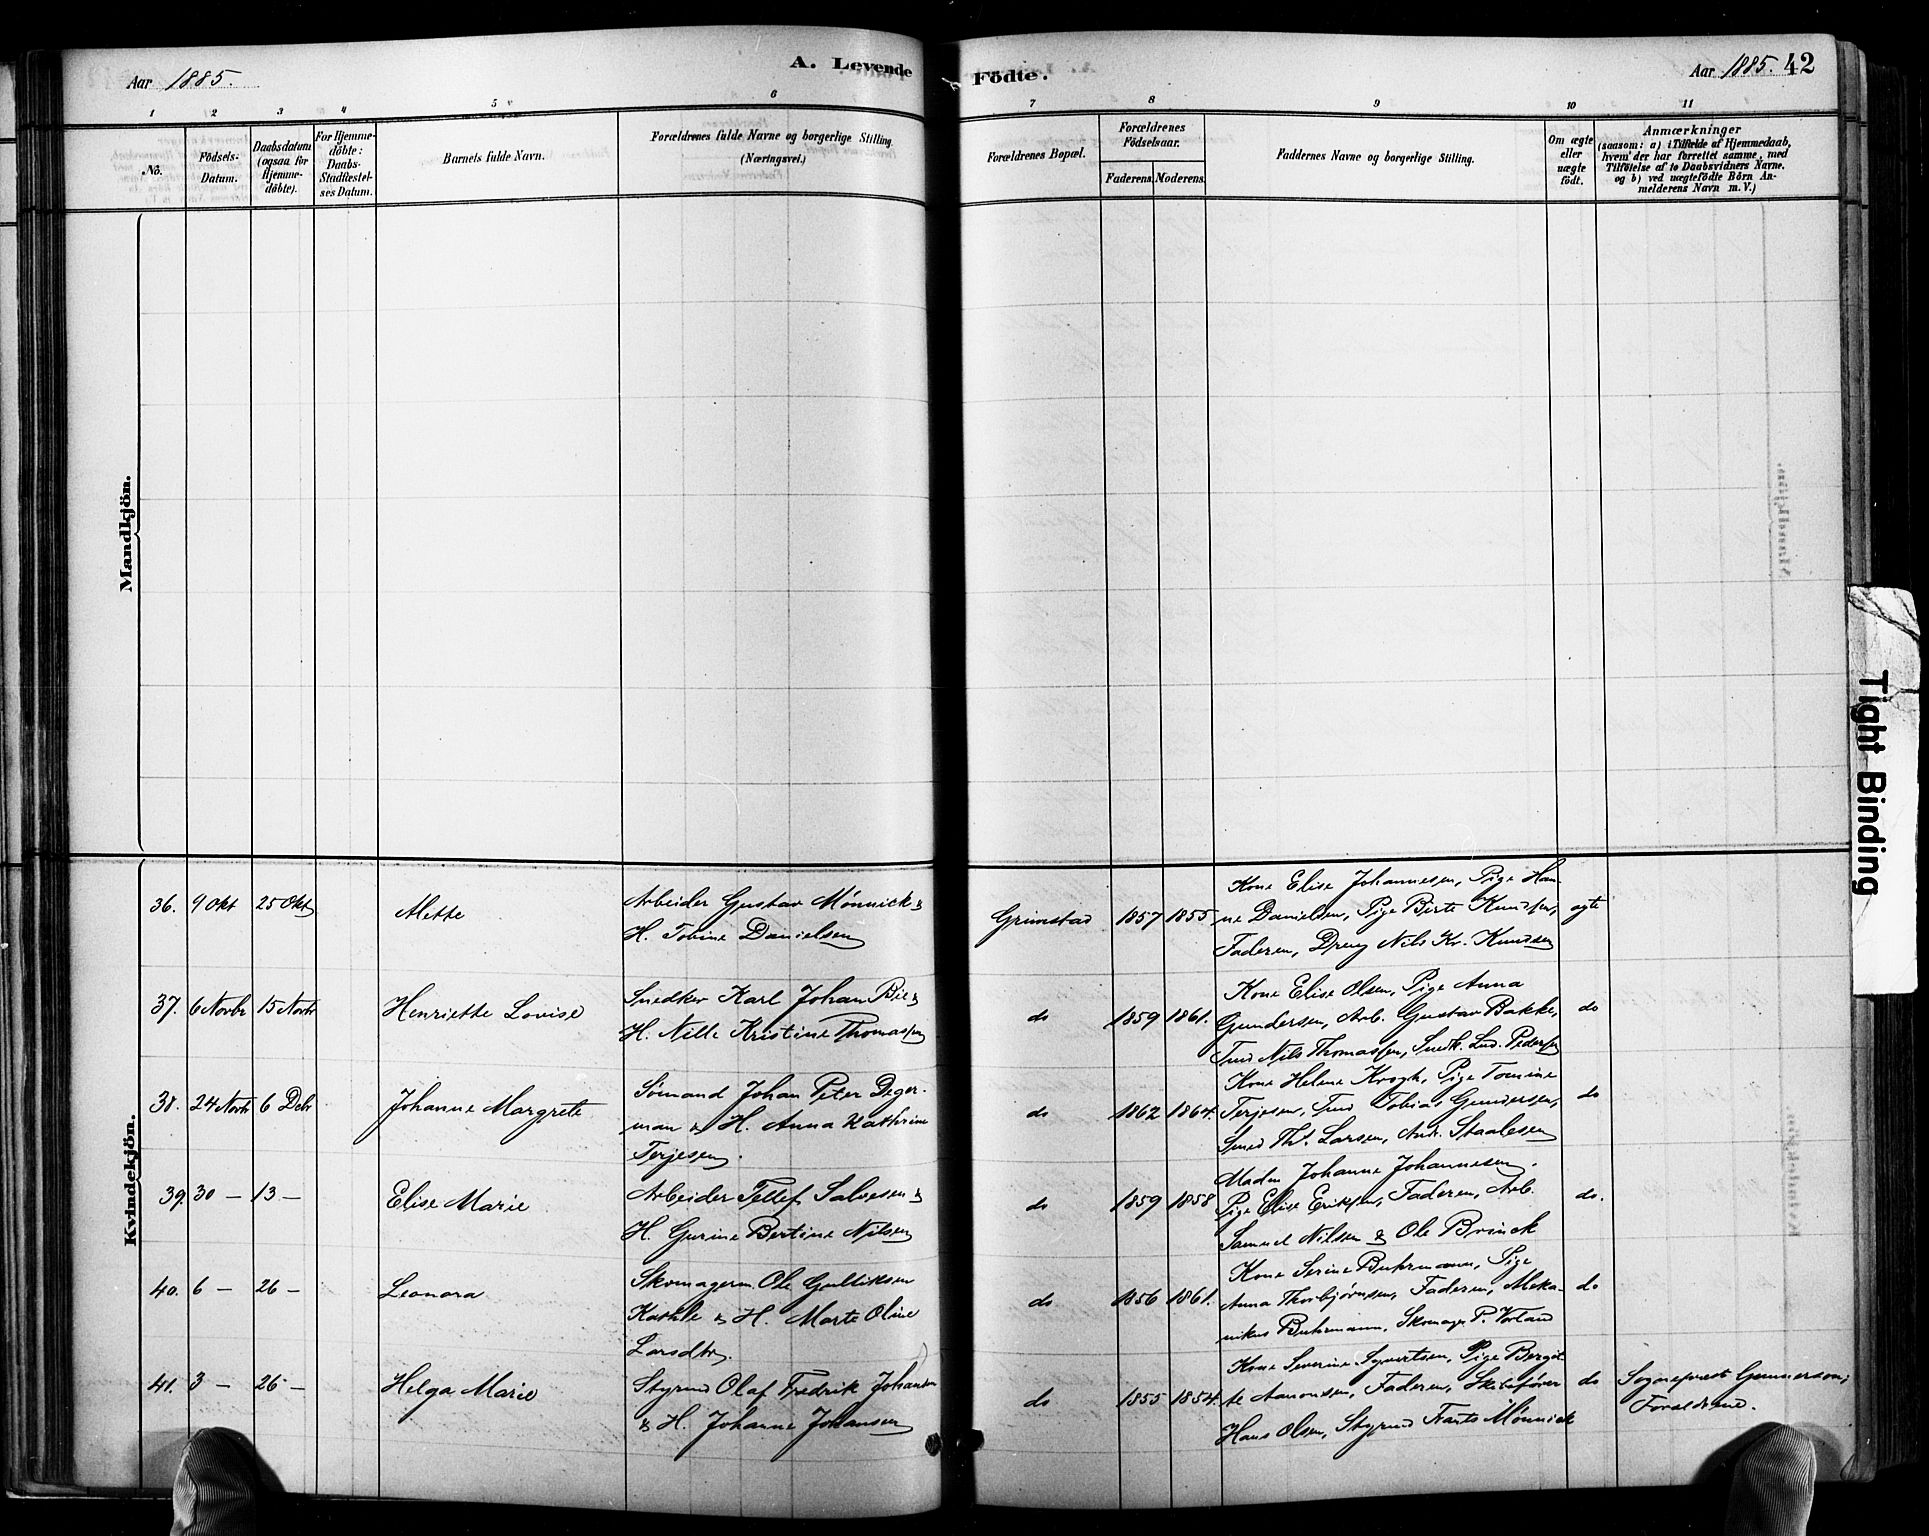 Aar 1885.
A. Levende
Födte.
Aar 1885. 42
1 2 3 4 5 6 7 8 9 10 11
No.
Födsels-
Datum.
Daabsdatum
(ogsaa for
Hjemme-
döbte).
For Hjemme-
döbte:
Daabs-
Stadfæstel-
ses Datum.
Barnets fulde Navn.
Forældrenes fulde Navne og borgerlige Stilling
(Næringsvei.)
Forældrenes Bopæl.
Forældrenes
Födselsaar.
Faderens. Moderens.
Faddernes Navne og borgerlige Stilling.
Om ægte
eller
uægte
födt.
Anmærkninger
(saasom: a) i Tilfælde af Hjemmedaab,
hvem der har forrettet samme, med
Tilföielse af to Daabsvidners Navne.
og b) ved uægtefödte Börn An-
melderens Navn m. V.)
Mandkjön.
Kvindekjön.
36. 9 Okt 25 Okt
Alette
Arbeider Gustav Mønnick &
H. Tobine Danielsen
Grimstad 1857 1855
Kone Elise Johannesen, Pige Han-
ne Danielsen, Pige Birte Knudsen,
Faderen, Dreng Nils Kr. Knudsen
ægte
37. 6 Novbr 15 Novbr
Henriette Lovise
Snedker Karl Johan Bie &
H. Nille Kristine Thomassen
do 1859 1861.
Kone Elise Olsen, Pige Anna
Gundersen, Arb. Gustav Bakke,
Tmd Nils Thomassen, Snedk. Lud. Pedersen
do
38. 24 Novbr 6 Debr
Johanne Margrete
Sømand Johan Peter Deger-
man & H. Anna Kathrine
Terjesen.
do 1862 1864.
Kone Helene Krogh, Pige Tomine
Terjesen, Tmd Tobias Gundersen,
Smed Th. Larsen, Andr. Staalesen
do
39. 30 — 13 —
Elise Marie
Arbeider Tellef Salvesen &
H. Gurine Bertine Nilsen
do 1859 1858
Madm Johanne Johannesen.
Pige Elise Eriksen, Faderen, Arb.
Samuel Nilsen & Ole Brinck
do.
40. 6 — 26 —
Leonora
Skomagerm. Ole Gulliksen
& H. Marte Oline
do 1856 1861.
Kone Serine Buhrmann, Pige
Anna Thorbjørnsen, Faderen, Meka-
nikus Buhrmann, Skomager P. Vorland
do
41. 3 — 26 —
Helga Marie
Styrmd Olaf Fredrik Johansen
& H. Johanne Johansen
do 1855 1854.
Kone Severine Syvertsen, Pige Bergit-
te Aanonsen, Faderen, Skibsfører
Hans Olsen, Styrmd Frants Mønnick
do
Sogneprest Gunnerson;
Forældrene.
Tight Binding